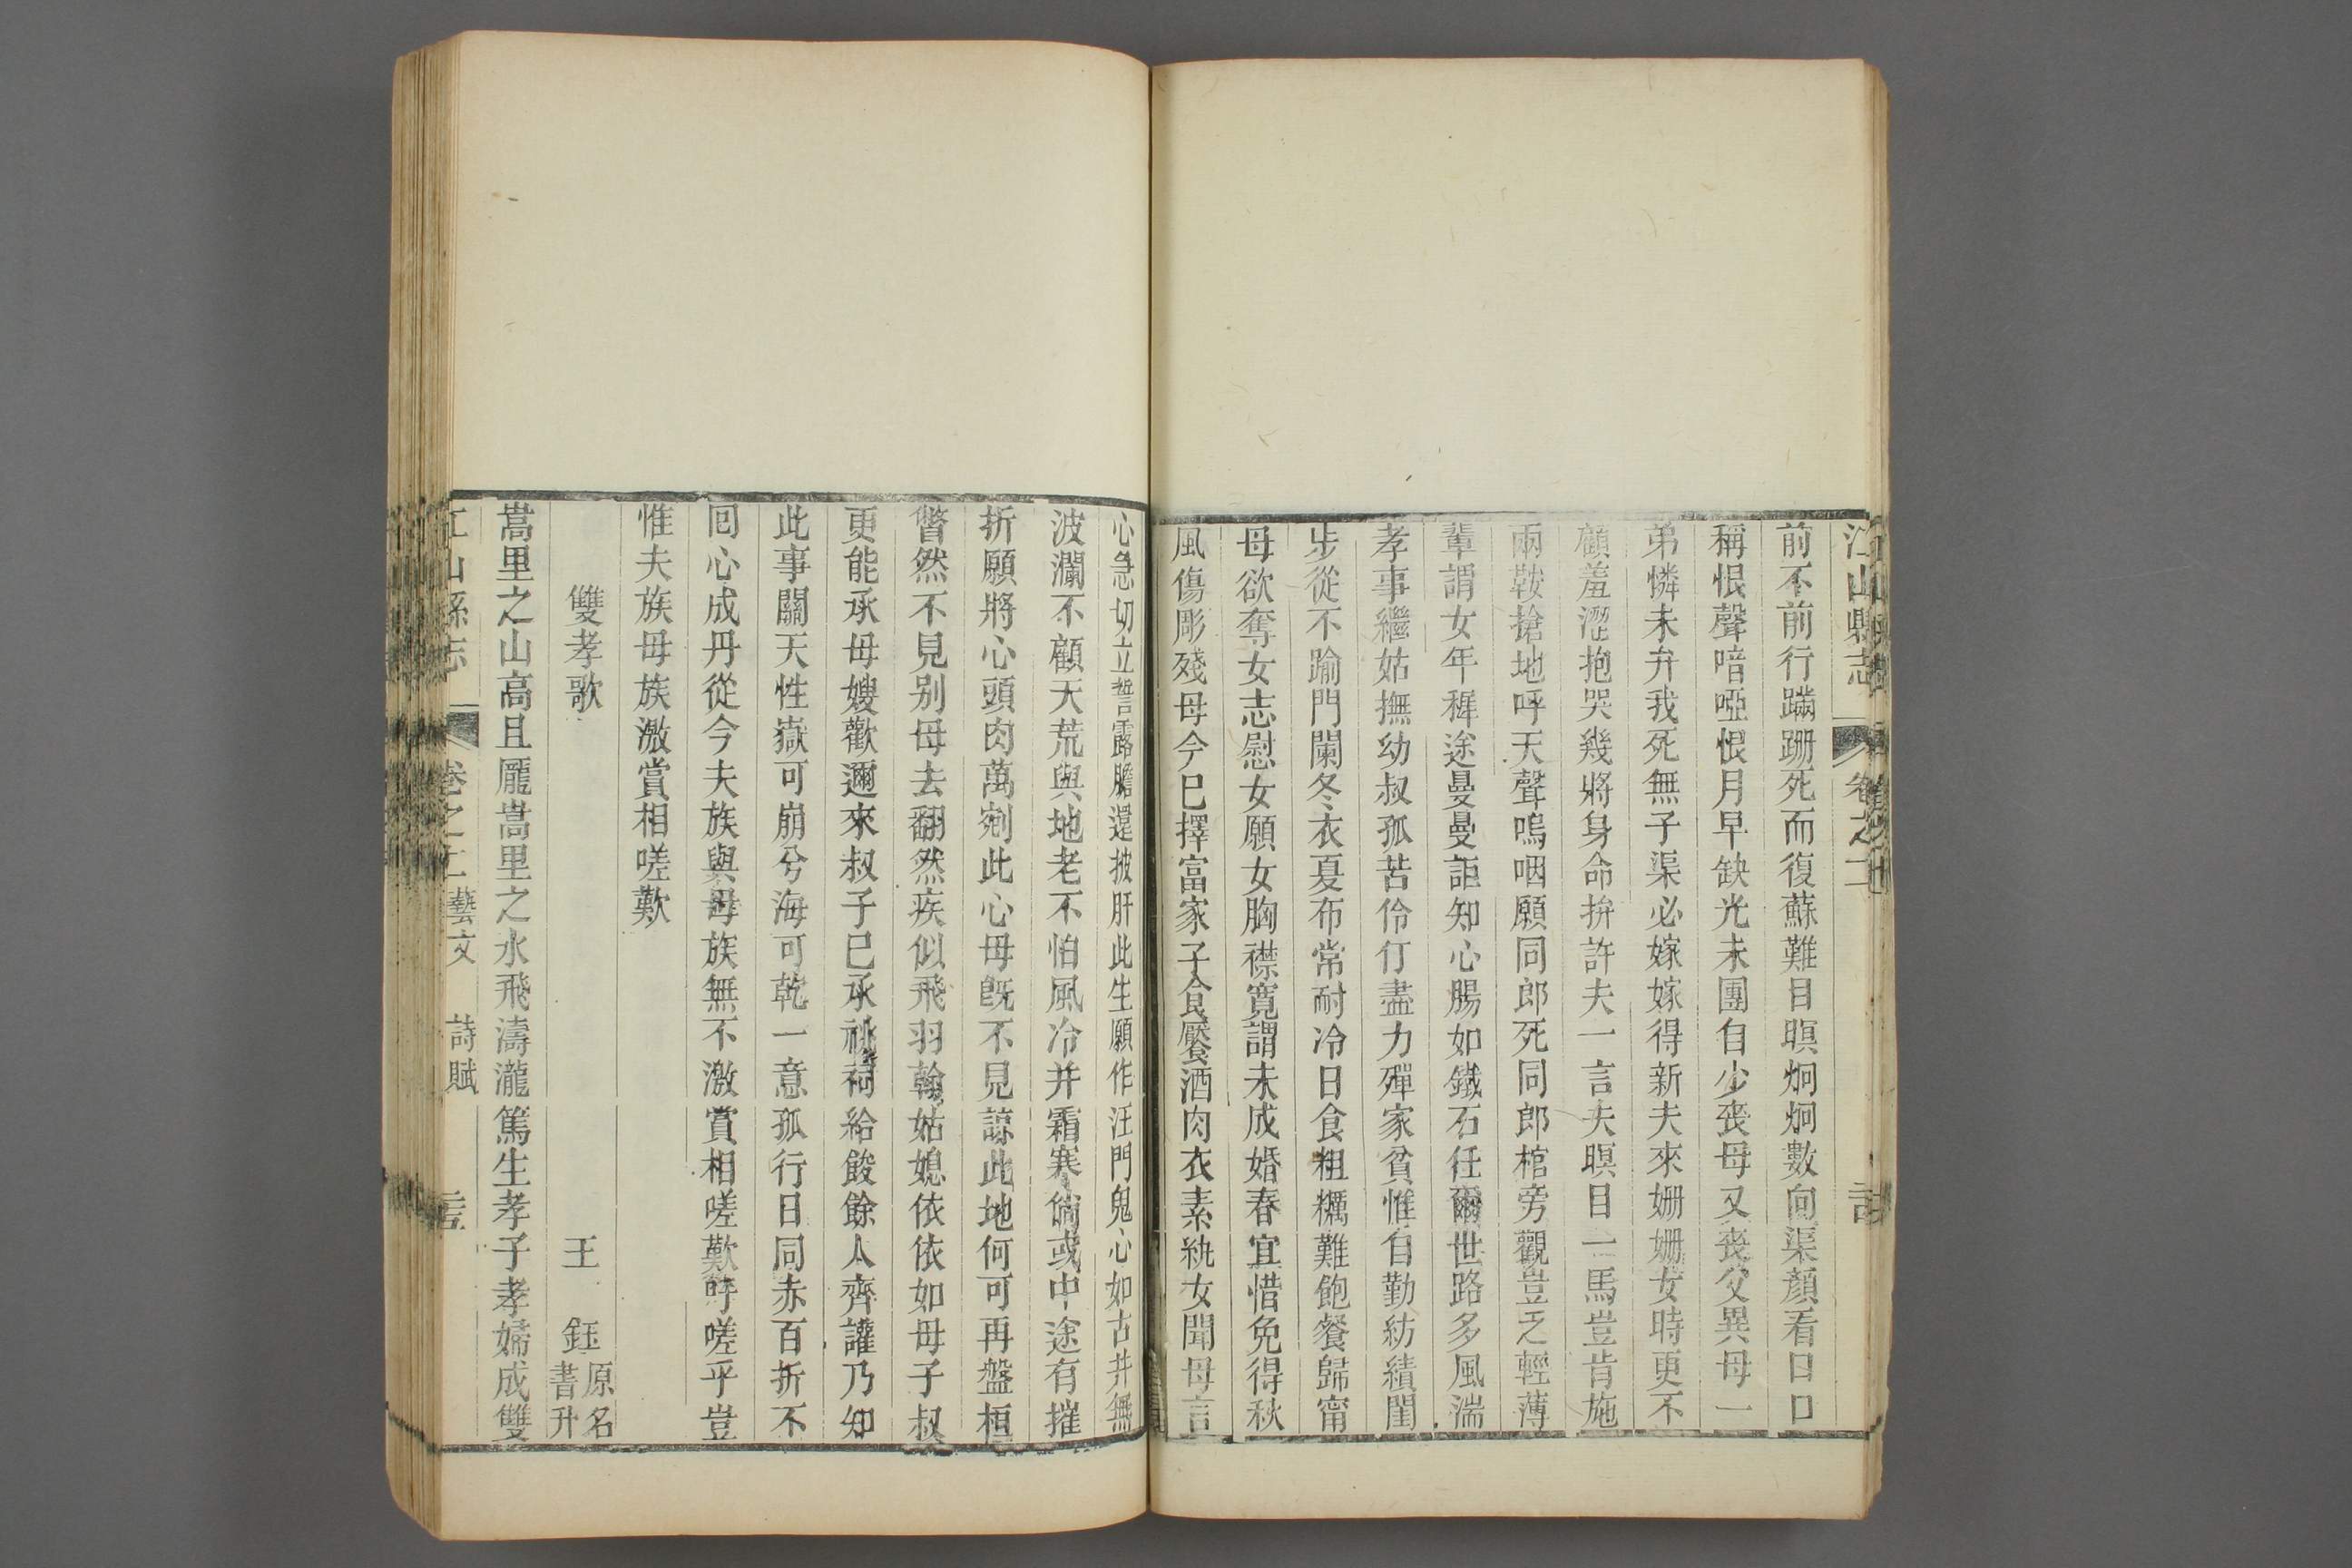 江山縣志 卷之十二
前不前行蹣跚死而復蘇難目瞑炯炯數向渠顏看口口
稱恨聲喑啞恨月早缺光未團自少喪母又喪父異母一
弟憐未弁我死無子渠必嫁嫁得新夫來姍姍女時更不
顧羞澀抱哭幾將身命拚許夫一言夫瞑目一馬豈肯施
兩鞍搶地呼天聲嗚咽願同郎死同郎棺旁觀豈乏輕薄
輩謂女年穉途曼曼詎知心腸如鐵石任爾世路多風湍
孝事繼姑撫幼叔孤苦伶仃盡力殫家貧惟自勤紡績閨
步從不踰門闌冬衣夏布常耐冷日食粗糲難飽餐歸甯
母欲奪女志慰女願女胸襟寬謂未成婚春宜惜免得秋
風傷彫殘母今已擇富家子食饜酒肉衣素紈女聞母言
心急切立誓露膽還披肝此生願作汪門鬼心如古井無
波瀾不顧天荒與地老不怕風冷并霜寒倘或中途有摧
折願將心頭肉萬剜此心母旣不見諒此地何可再盤桓
瞥然不見别母去翻然疾似飛羽翰姑媳依依如母子叔
更能承母嫂歡邇來叔子已承祧祠給餕餘人齊讙乃知
此事關天性嶽可崩兮海可乾一意孤行日同赤百折不
囘心成丹從今夫族與母族無不激賞相嗟歎吁嗟乎豈
惟夫族母族激賞相嗟歎
雙孝歌 王 鈺 原名書升
嵩里之山高且龎嵩里之水飛濤瀧篤生孝子孝婦成雙
江山縣志 卷之十二 藝文 詩賦